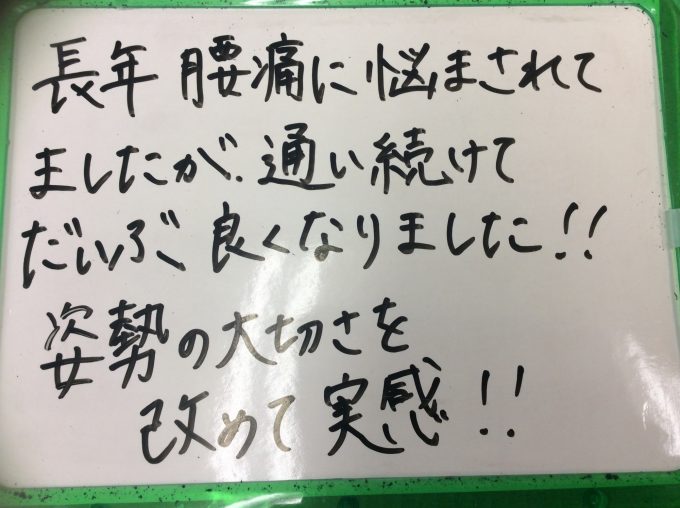 長年 腰痛に悩まされて
ましたが、通い続けて
だいぶ 良くなりました!!
姿勢の大切さを
改めて 実感!!